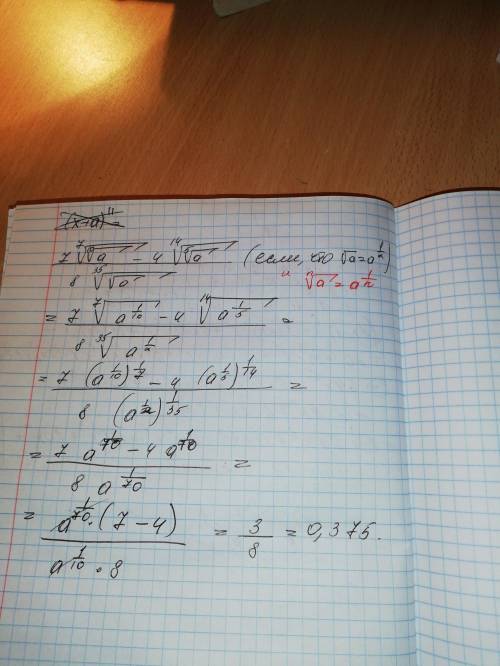 (x+a)¹¹ =
(7 ⁷√(¹⁰√a) − 4 ¹⁴√(⁵√a)) / (8 ³⁵√(√a)) (если, что √a = a^(1/2))
и ⁿ√a = a^(1/n)
= (7 ⁷√(a^(1/10)) − 4 ¹⁴√(a^(1/5))) / (8 ³⁵√(a^(1/2))) =
= (7 (a^(1/10))^(1/7) − 4 (a^(1/5))^(1/14)) / (8 (a^(1/2))^(1/35)) =
= (7 a^(1/70) − 4 a^(1/70)) / (8 a^(1/70)) =
= (a^(1/70) · (7 − 4)) / (a^(1/10) · 8) = 3/8 = 0,375.